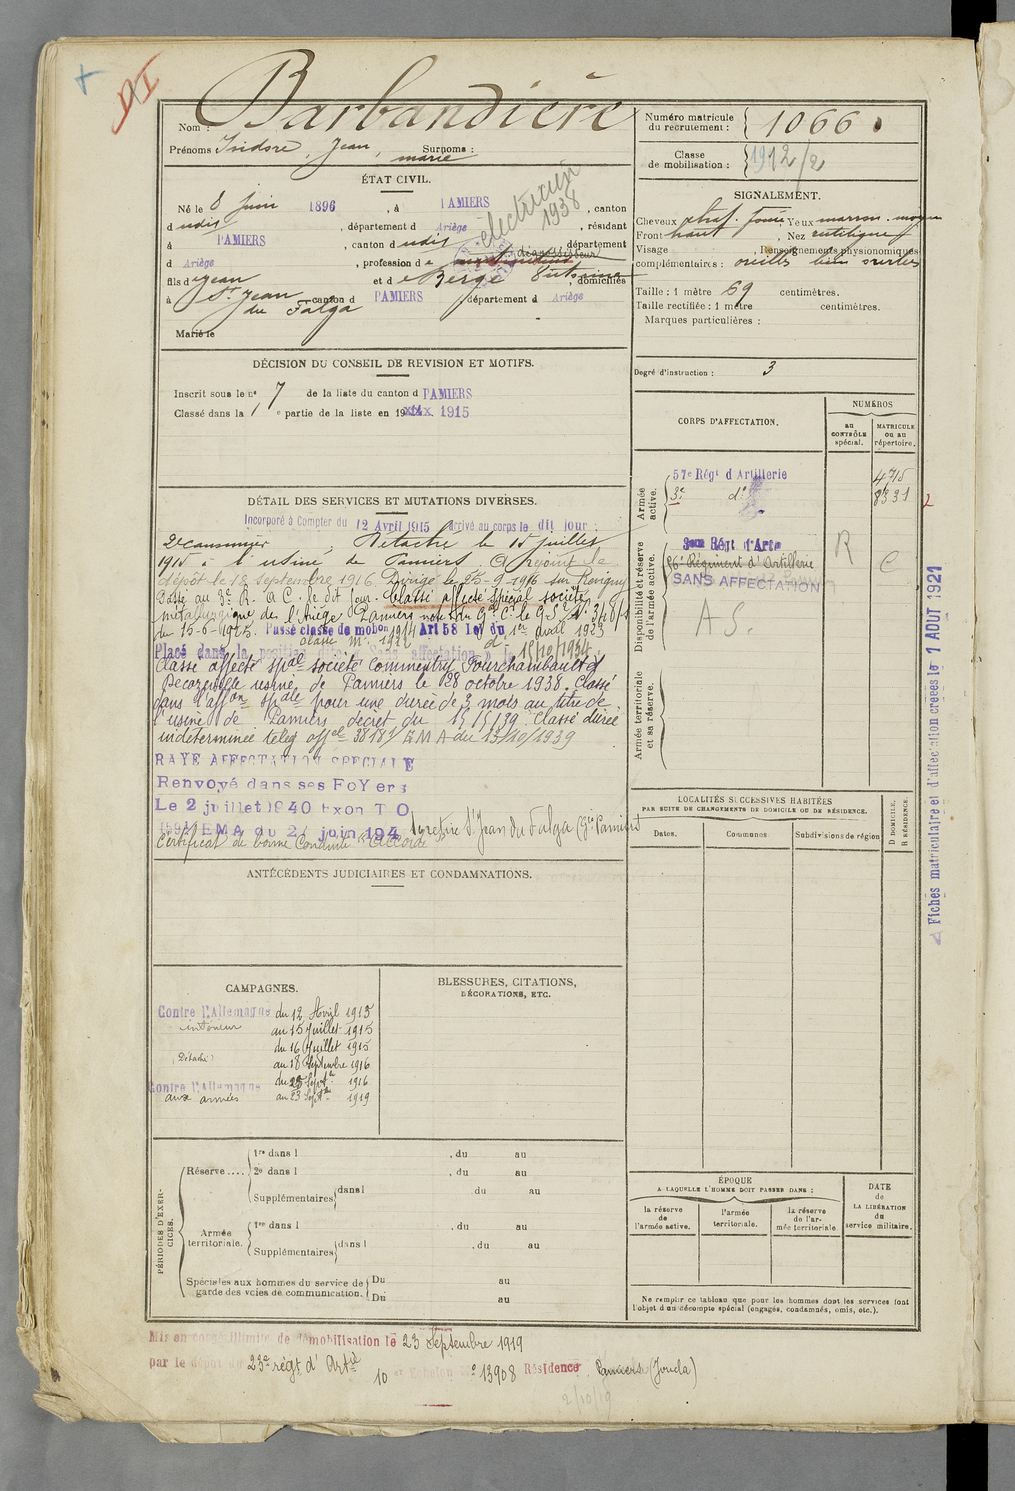 Barbandière
Nom :
Prénoms Isidore, Jean, marie Surnoms :
Numéro matricule
du recrutement : 1066
Classe
de mobilisation : 1912/2
ÉTAT CIVIL.
Né le 8 juin 1896, à PAMIERS, canton
dudit, département d Ariège, résidant
à PAMIERS, canton dudit, département
d Ariège, profession de dégrossisseur
électricien
1938
fils de Jean et de Berge, domiciliés
à St Jean du Falga canton d PAMIERS département d Ariège
Marié le
SIGNALEMENT.
Cheveux chat. foncé Yeux marron moyen
Front haut, Nez rectiligne
Visage, Renseignements physionomiques
complémentaires : oreilles bien ourlées
Taille : 1 mètre 69 centimètres.
Taille rectifiée : 1 mètre centimètres.
Marques particulières :
Degré d'instruction : 3
DÉCISION DU CONSEIL DE REVISION ET MOTIFS.
Inscrit sous le n° 7 de la liste du canton d PAMIERS
Classé dans la 1e partie de la liste en 19 1915
CORPS D'AFFECTATION.
NUMÉROS
au
CONTRÔLE
spécial.
MATRICULE
ou au
répertoire.
Armée
active.
57e Régt d'Artillerie 4715
3e d° 8331
Disponibilité et réserve
de l'armée active.
3me Régt d'Artie
Régiment d'Artillerie
SANS AFFECTATION
R
C
A S.
Armée territoriale
et sa réserve.
DÉTAIL DES SERVICES ET MUTATIONS DIVERSES.
Incorporé à Compter du 12 Avril 1915 arrivé au corps le dit jour.
2e canonnier, Détaché le 15 juillet
1915 à l'usine de Pamiers. Rejoint le
dépôt le 18 septembre 1916. Dirigé le 25-9-1916 sur Revigny
Passé au 3e R. A. C. le dit jour. Classé affecté spécial société
métallurgique de l'Ariège Pamiers
du 15-6-1925. Passé classe de mobon 1914 Art 58 Loi du 1er avril 1923
classe m. 1912 d°
Placé dans la position dite "Sans affectation" le 15/10/1934
Classé affecté spal société Commentry Fourchambault et
Decazeville usine de Pamiers le 28 octobre 1938. Classé
dans l'affon spale pour une durée de 3 mois au titre de
l'usine de Pamiers décret du 15/5/39. Classé durée
indéterminée teleg offel 38181 EMA du 13/10/1939
RAYE AFFECTATION SPECIALE
Renvoyé dans ses FoYers
Le 2 juillet 1940 Exon T O
EMA du 2 juin 194
se retire St Jean du Falga (Gie Pamiers)
Certificat de bonne Conduite "Accordé"
ANTÉCÉDENTS JUDICIAIRES ET CONDAMNATIONS.
LOCALITÉS SUCCESSIVES HABITÉES
PAR SUITE DE CHANGEMENTS DE DOMICILE OU DE RÉSIDENCE.
Dates.
Communes
Subdivisions de région
D DOMICILE.
R RÉSIDENCE.
CAMPAGNES.
Contre l'Allemagne du 12 Avril 1915
intérieur au 15 Juillet 1915
du 16 Juillet 1915
(Détaché) au 18 Septembre 1916
Contre l'Allemagne du 25 Septbre 1916
aux armées au 23 Septbre 1919
BLESSURES, CITATIONS,
DÉCORATIONS, ETC.
PÉRIODES D'EXER-
CICES.
Réserve....
1re dans l , du au
2e dans l , du au
Supplémentaires dans l du au
Armée
territoriale.
1re dans l , du au
Supplémentaires dans l , du au
Spéciales aux hommes du service de
garde des voies de communication.
Du au
Du au
ÉPOQUE
A LAQUELLE L'HOMME DOIT PASSER DANS :
la réserve
de
l'armée active.
l'armée
territoriale.
la réserve
de l'ar-
mée territoriale.
DATE
de
LA LIBÉRATION
du
service militaire.
Ne remplir ce tableau que pour les hommes dont les services font
l'objet d'un décompte spécial (engagés, condamnés, omis, etc.).
Fiches matriculaire et d'affectation créées le 1 AOUT 1921
Mis en congé illimité de démobilisation le 23 Septembre 1919
par le dépôt du 23e régt d'Artie
10 Echelon n° 13908 Résidence Pamiers (Joucla)
2/10/19